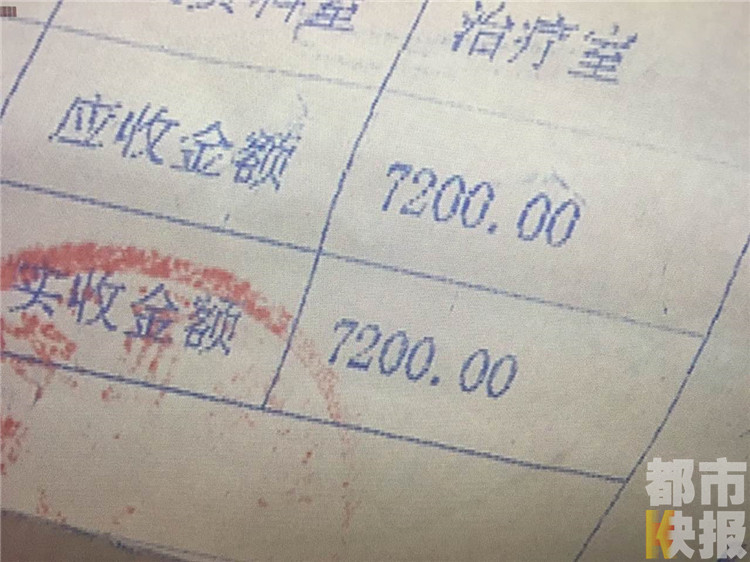 科室 治疗室
应收金额 7200.00
实收金额 7200.00
都市
快报